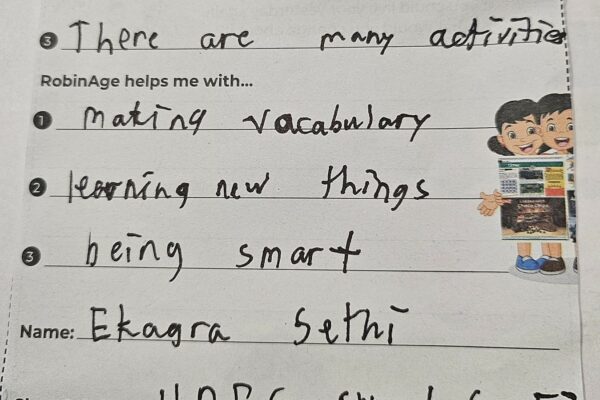 3 There are many activities
RobinAge helps me with...
1 making vacabulary
2 learning new things
3 being smart
Name: Ekagra Sethi